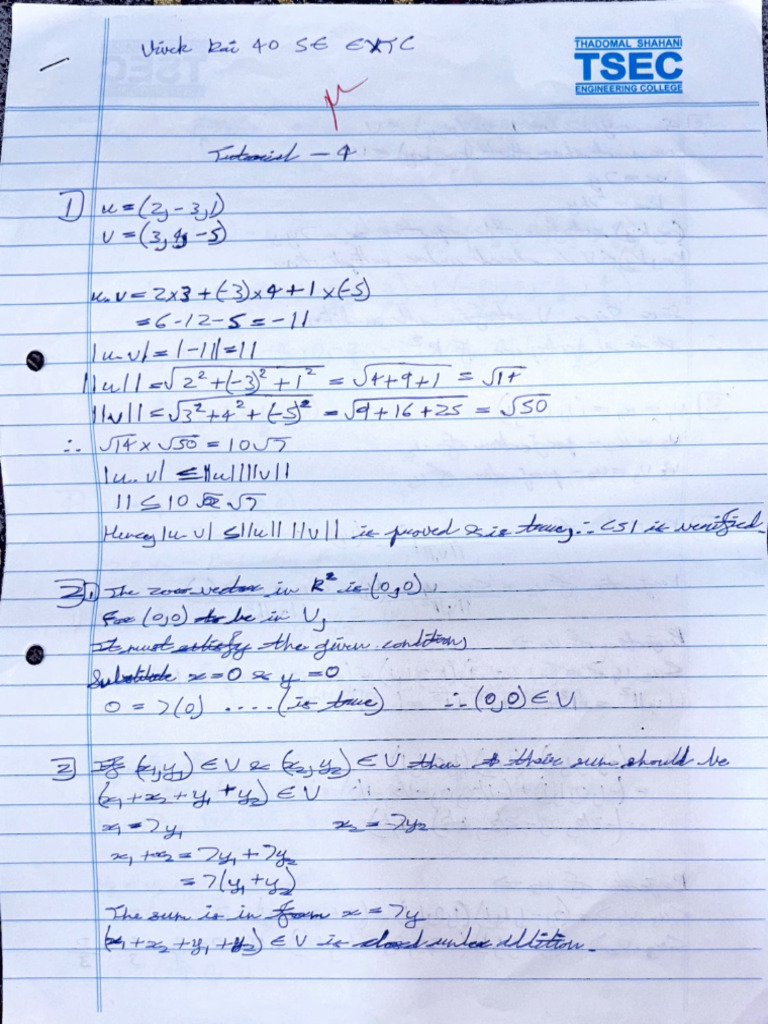 Vivek Rai 40 SE EXTC
THADOMAL SHAHANI
TSEC
ENGINEERING COLLEGE
Tutorial - 4
1) u = (2, -3, 1)
v = (3, 4, -5)
u.v = 2x3 + (-3)x4 + 1x(-5)
= 6 - 12 - 5 = -11
|u.v| = |-11| = 11
||u|| = √2² + (-3)² + 1² = √4+9+1 = √14
||v|| = √3² + 4² + (-5)² = √9+16+25 = √50
∴ √14 x √50 = 10√7
|u.v| ≤ ||u|| ||v||
11 ≤ 10 √7
Hence, |u.v| ≤ ||u|| ||v|| is proved & is true, ∴ CSI is verified.
1) The zero vector in R² is (0,0).
For (0,0) to be in V,
It must satisfy the given condition,
Substitute x = 0 & y = 0
0 = 7(0) .... (is true) ∴ (0,0) ∈ V
2) If (x₁,y₁) ∈ V & (x₂,y₂) ∈ V then their sum should be
(x₁+x₂+y₁+y₂) ∈ V
x₁ = 7y₁ x₂ = 7y₂
x₁+x₂ = 7y₁+7y₂
= 7(y₁+y₂)
The sum is in form x = 7y
(x₁+x₂+y₁+y₂) ∈ V is closed under addition.